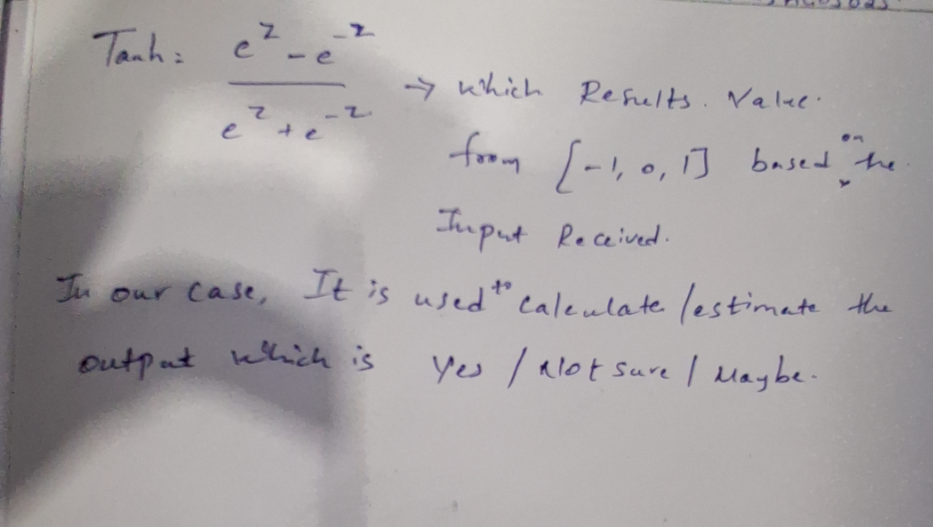 Tanh = e^z - e^-z / e^z + e^-z → which Results. Value.
from [-1, 0, 1] based on the
Input Received.
In our case, It is used to calculate /estimate the
output which is Yes / Not sure / Maybe.